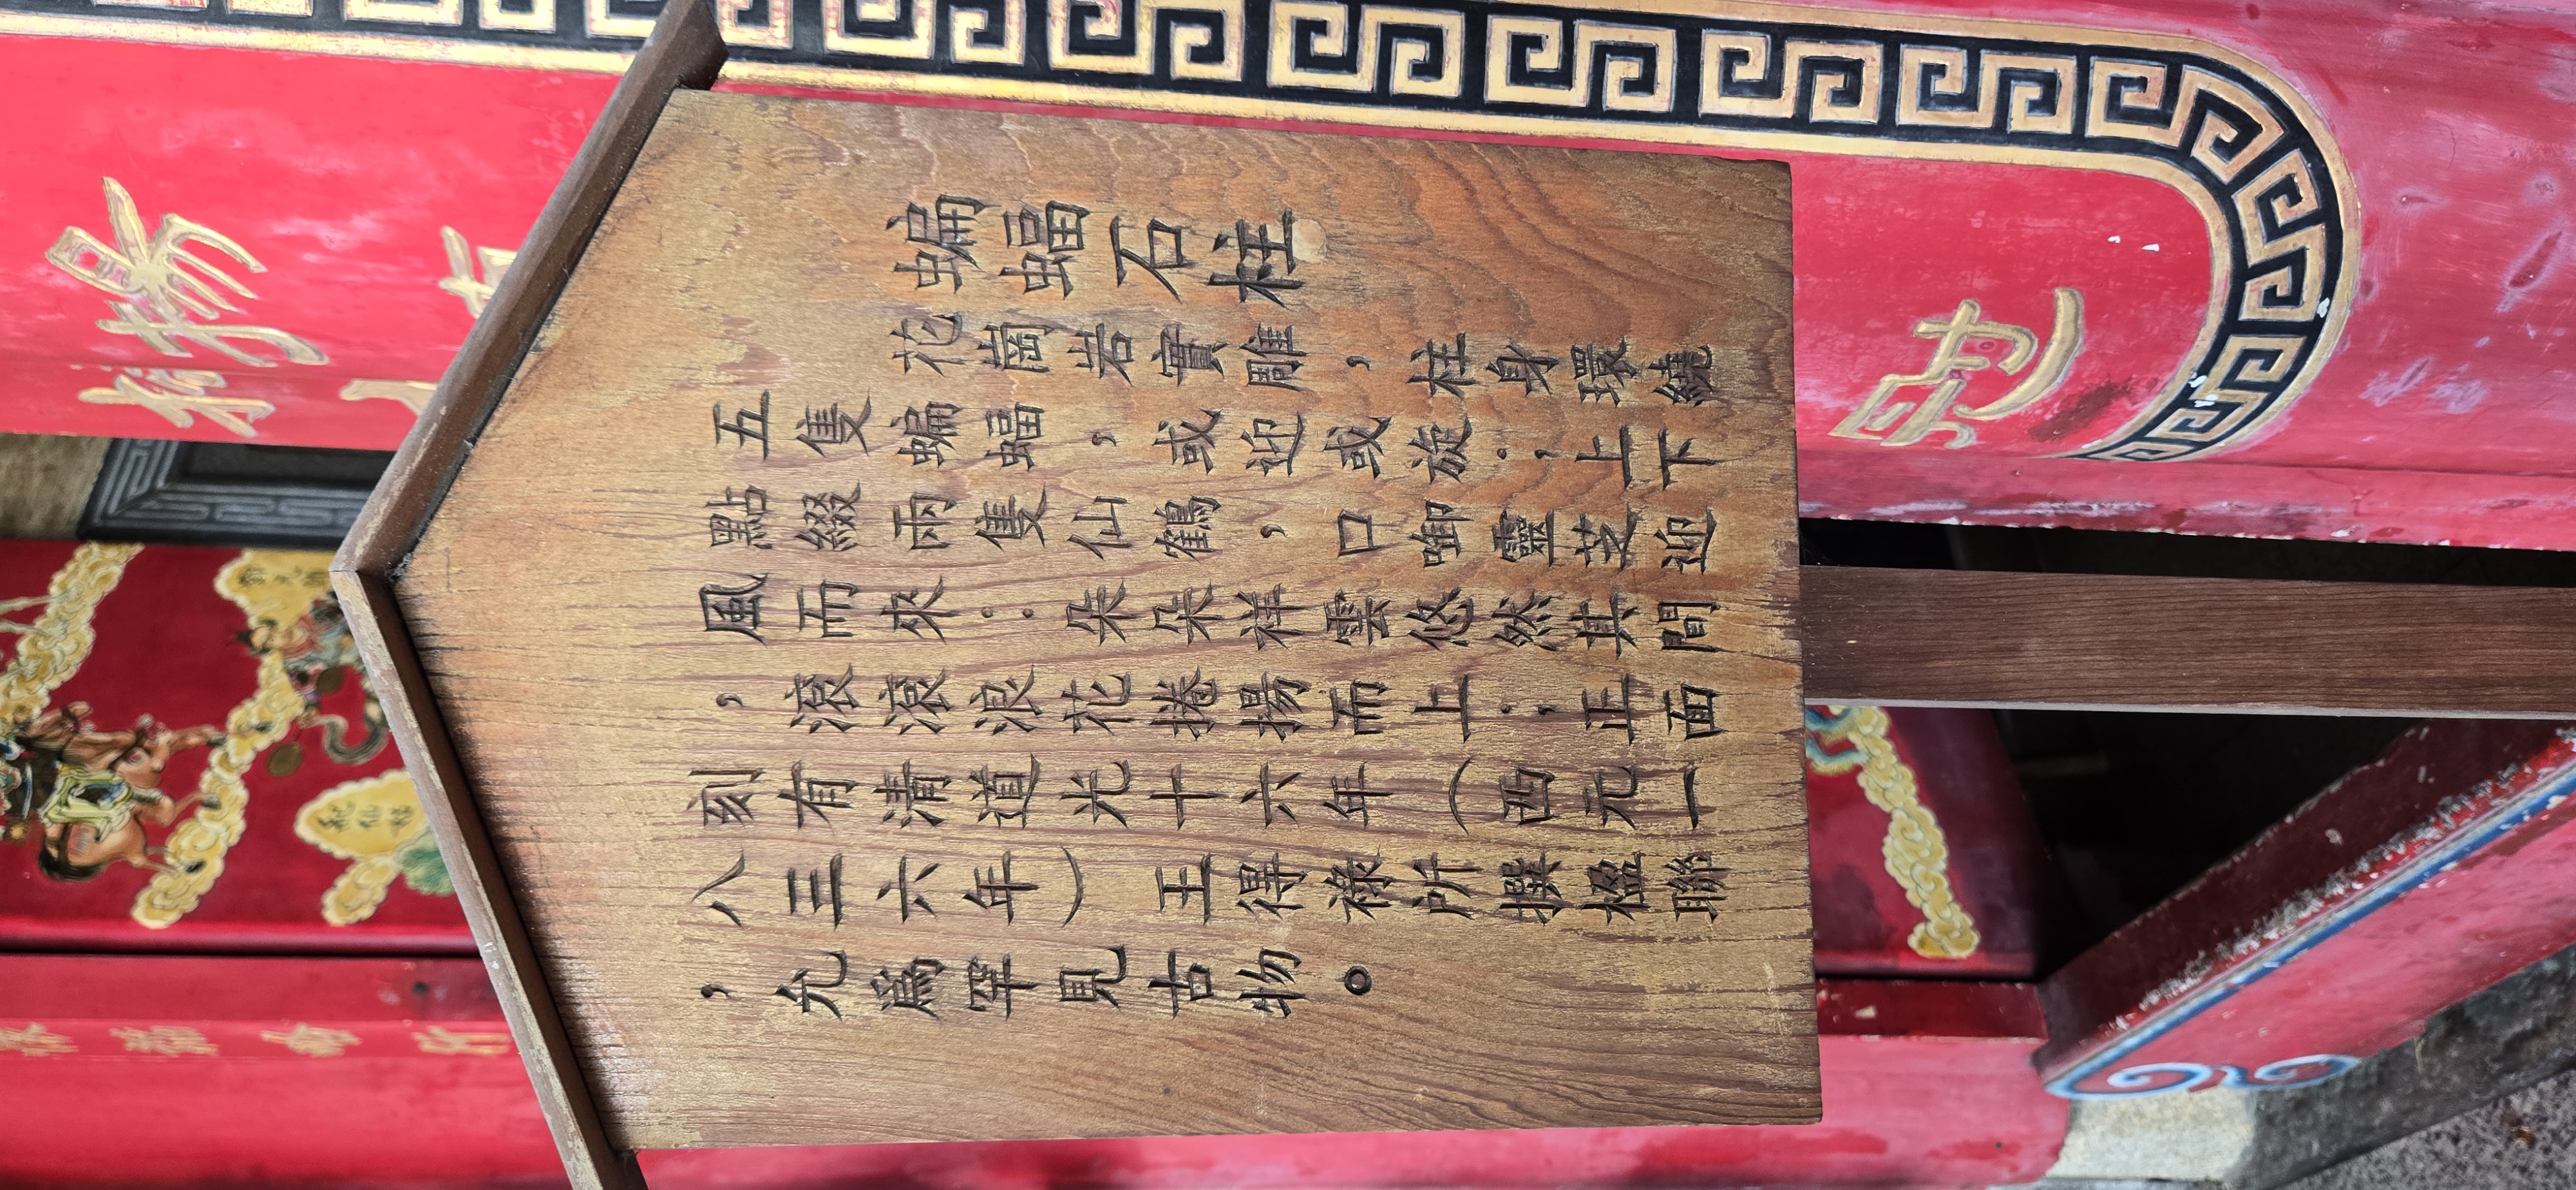 蝙蝠石柱
花崗岩實雕,柱身環繞
五隻蝙蝠,或迎或旋;上下
點綴兩隻仙鶴,口啣靈芝迎
風而來:朵朵祥雲悠然其間
,滾滾浪花捲揚而上;正面
刻有清道光十六年(西元一
八三六年)王得祿所撰楹聯
,允為罕見古物。